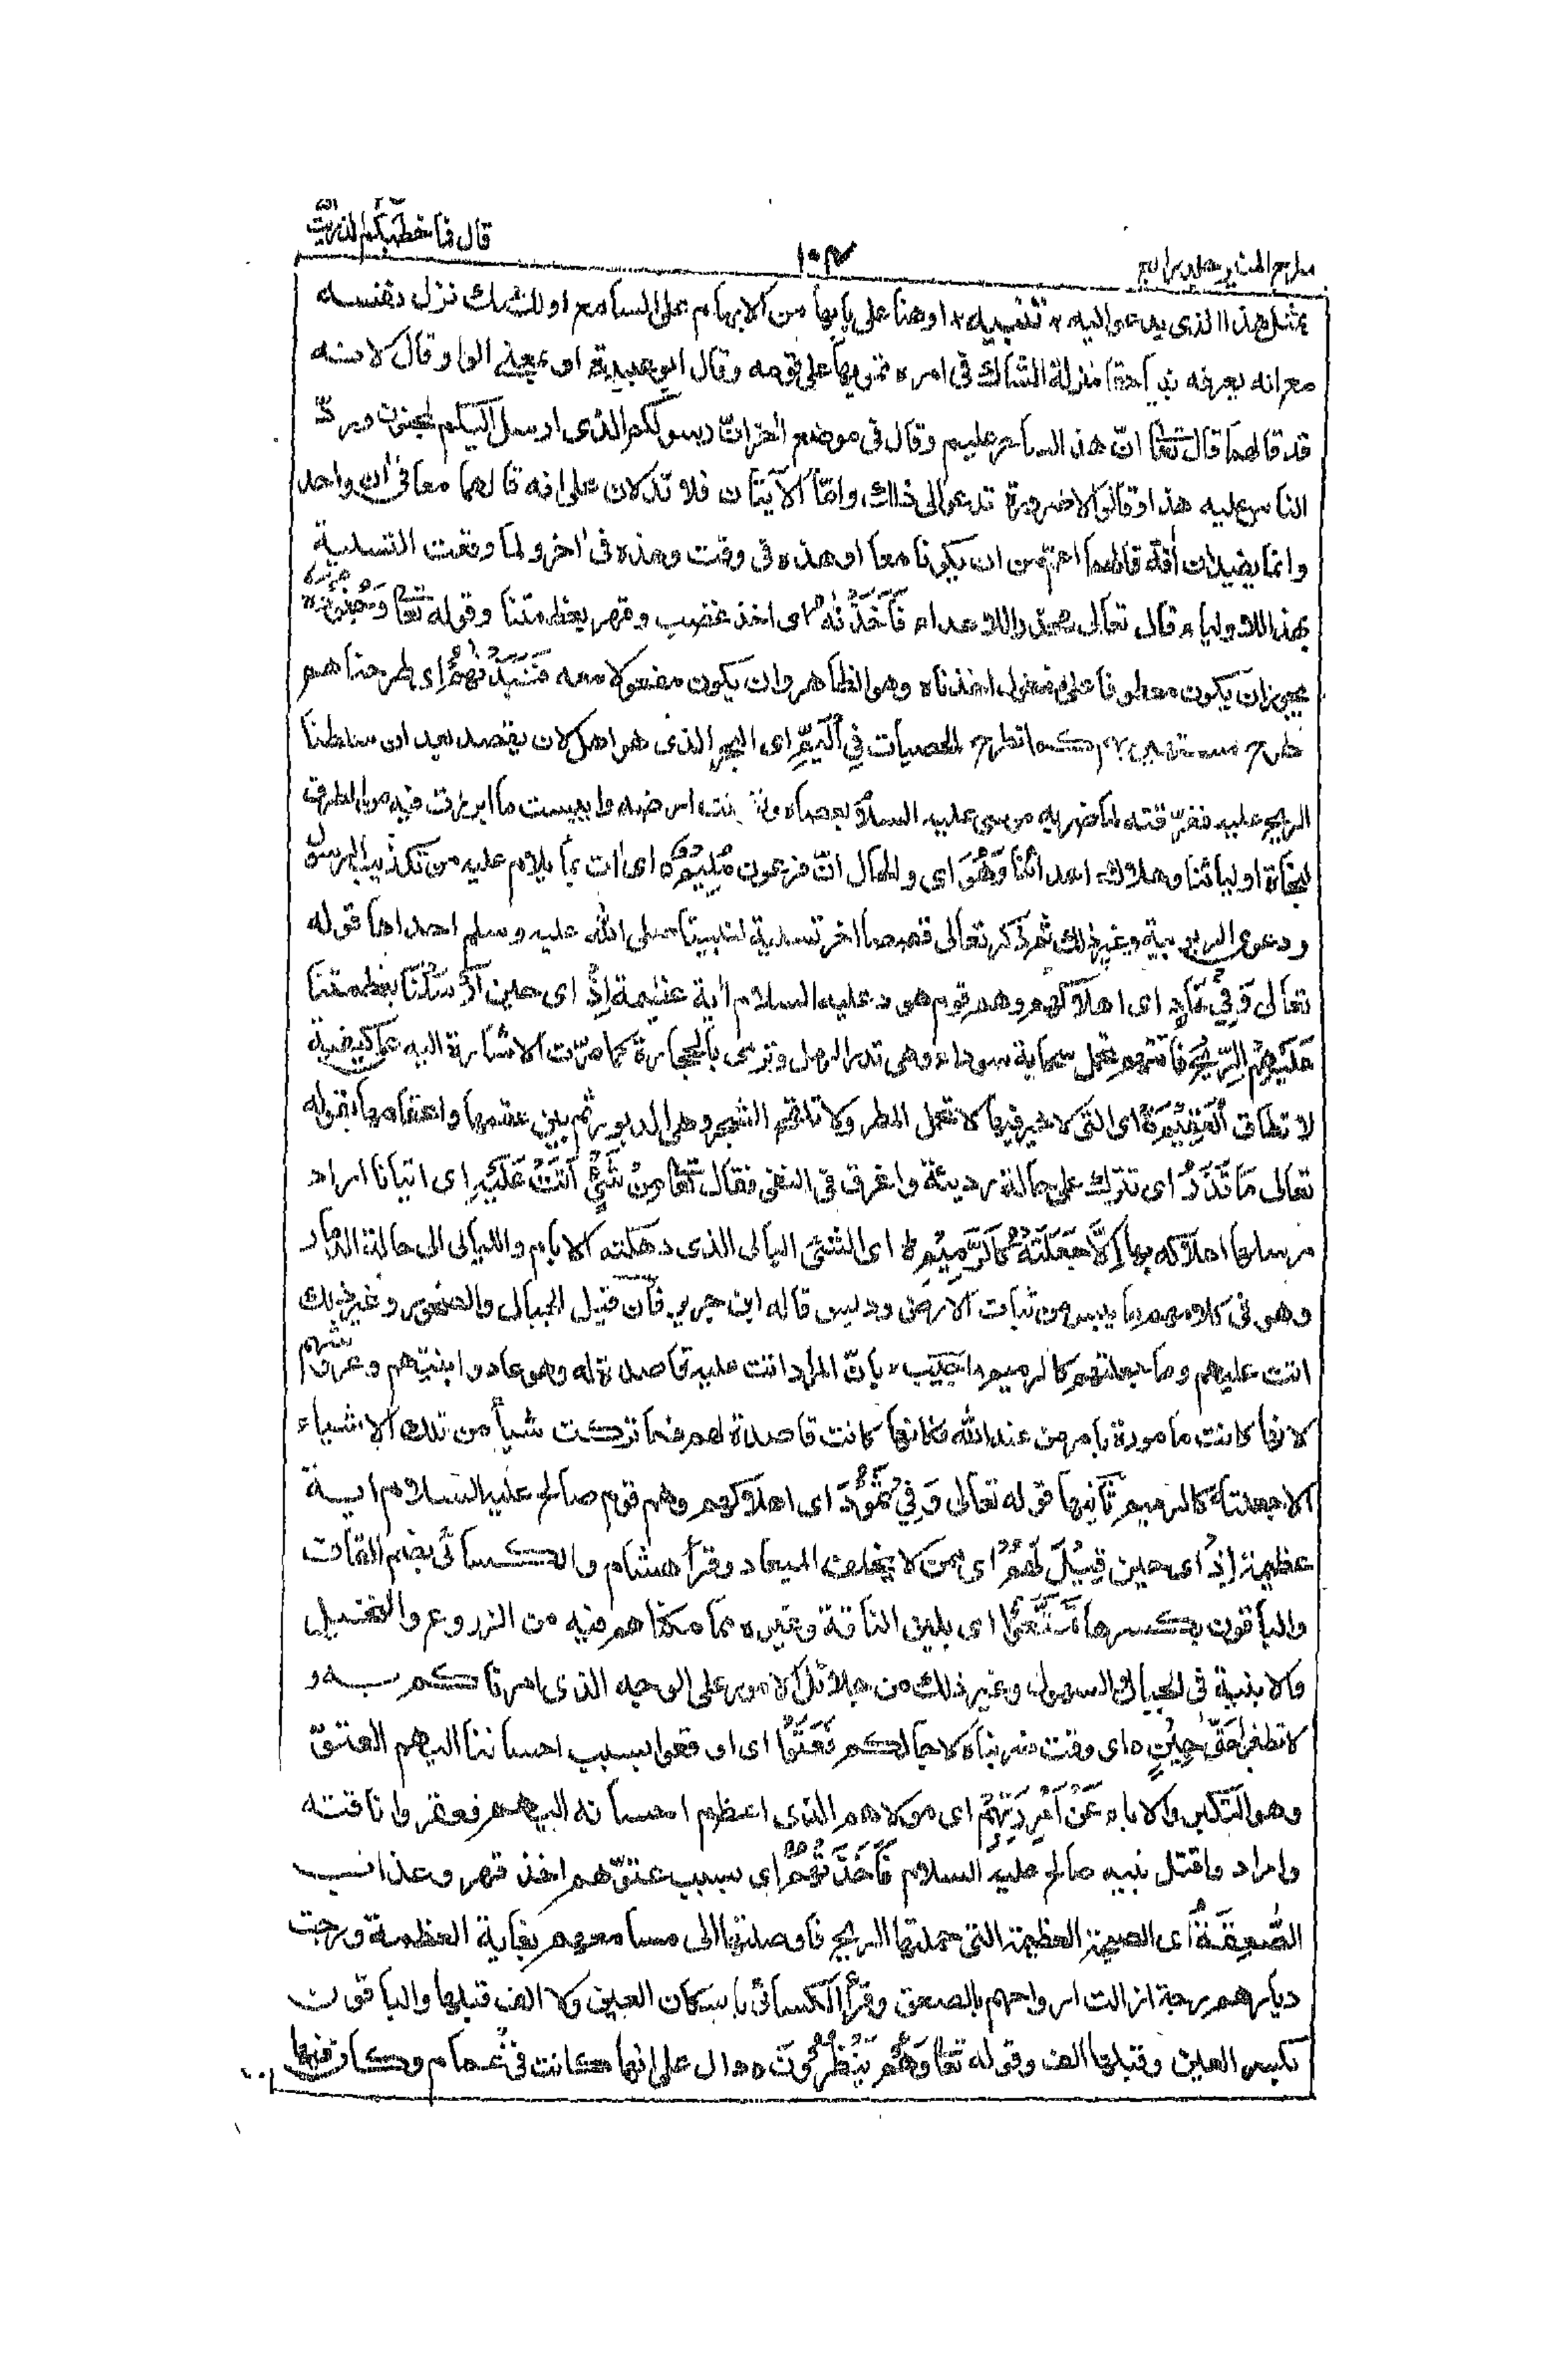 قال فما خطبكم الذريت
١٠٣
سراج المنير جلد رابع
بمثل هذا الذى يدعو اليه * تنبيه * او هنا على بابها من الابهام على السامع او للشك نزل نفسه
مع انه يعرفه نبيا حقا منزلة الشاك فى امره تمويها على قومه وقال ابو عبيدة او بمعنى الواو قال لانه
قد قالهما قال تعا انّ هذا لساحر عليم وقال فى موضع اخر انّ رسولكم الذى ارسل اليكم لمجنون وردّ
الناس عليه هذا وقالوا لا ضرورة تدعو الى ذلك وامّا الآيتان فلا تدلان على انه قالهما معا فى اٰن واحد
وانما يفيدان انّه قالهما اعم من ان يكونا معا او هذه فى وقت وهذه فى اٰخر ولما وقعت التسلية
بهذا للاولياء قال تعالى محذرا للاعداء فَاَخَذْنٰهُ اى اخذ غضب وقهر بعظمتنا وقوله تعا وَجُنُوْدَهٗ
يجوز ان يكون معطوفا على مفعول اخذناه وهو الظاهر وان يكون مفعولا معه فَنَبَذْنٰهُمْ اى طرحناهم
طرح مستهين بهم كما تطرح الحصيات فِي الْيَمِّ اى البحر الذى هو اهل لان يقصد بعد ان سلطنا
الريح عليه ففرّقته لما ضربه موسى عليه السلام بعصاه ونشفت ارضه وايبست ما ابرزت فيه من الطرق
لنجاة اوليائنا وهلاك اعدائنا وَهُوَ اى والحال انّ فرعون مُلِيْمٌ اى اٰت بما يلام عليه من تكذيب الرسول
ودعوى الربوبية وغير ذلك ثم ذكر تعالى قصصا اخر تسلية لنبينا صلى الله عليه وسلم احداها قوله
تعالى وَفِيْ عَادٍ اى اهلاكهم وهم قوم هود عليه السلام اٰية عظيمة اِذْ اى حين اَرْسَلْنَا بعظمتنا
عَلَيْهِمُ الرِّيْحَ فاتتهم تحمل سحابة سوداء وهى تذر الرمل وترمى بالحجارة كما مرّت الاشارة اليه بكيفية
لا تطاق الْعَقِيْمَ اى التى لا خير فيها لا تحمل المطر ولا تلقح الشجر وهى الدبور ثم بين عقمها واعقامها بقوله
تعالى مَا تَذَرُ اى تترك على حالة رديئة واغرق فى النفى فقال تعا مِنْ شَيْءٍ اَتَتْ عَلَيْهِ اى اتيانا اراد
مرسلها اهلاكه بها اِلَّا جَعَلَتْهُ كَالرَّمِيْمِ اى الشئ البالى الذى دهكته الايام والليالى الى حالة الدمار
وهو فى كلامهم ما يبس من نبات الارض وديس قاله ابن جرير فان قيل الجبال والصخور وغير ذلك
اتت عليهم وما جعلتهم كالرميم اجيب بانّ المراد اتت عليه قاصدة له وهو عاد وابنيتهم وعروشهم
لانها كانت مامورة بامر من عند الله فكانها كانت قاصدة لهم فما تركت شيأ من تلك الاشياء
الا جعلته كالرميم ثانيها قوله تعالى وَفِيْ ثَمُوْدَ اى اهلاكهم وهم قوم صالح عليه السلام اية
عظيمة اِذْ اى حين قِيْلَ لَهُمْ اى ممن لا يخلف الميعاد وقرأ هشام والكسائى بضم القاف
والباقون بكسرها تَمَتَّعُوْا اى بلبن الناقة وغيره مما مكناهم فيه من الزروع والنخيل
والابنية فى الجبال والسهول وغير ذلك من جلائل الامور على الوجه الذى امرناكم به و
لا تطغوا حَتّٰى حِيْنٍ ه اى وقت ضربناه لاجالكم فَعَتَوْا اى اوقعوا بسبب احساننا اليهم العتوّ
وهو التكبر والاباء عَنْ اَمْرِ رَبِّهِمْ اى مولاهم الذى اعظم احسانه اليهم فعقروا ناقته
وارادوا قتل نبيه صالح عليه السلام فَاَخَذَتْهُمُ اى بسبب عتوّهم اخذ قهر وعذاب
الصّٰعِقَةُ اى الصيحة العظيمة التى حملتها الريح فاوصلتها الى مسامعهم بغاية العظمة ورجت
ديارهم رجة ازالت ارواحهم بالصعق وقرأ الكسائى باسكان العين ولا الف قبلها والباقون
بكسر العين وقبلها الف وقوله تعا وَهُمْ يَنْظُرُوْنَ ه دال على انها كانت فى غمام وكان فيها